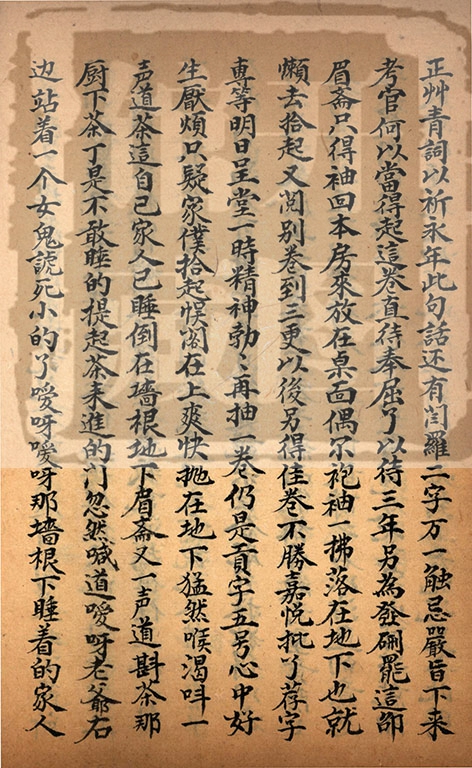 正艸青詞以祈永年此句話还有閆羅二字万一触忌嚴旨下来
考官何以當得起這卷直待奉屈了以待三年另為發硎罷這卲
眉斋只得袖回本房來放在桌面偶尔袍袖一拂落在地下也就
懶去拾起又閲别卷到三更以後另得佳卷不勝嘉悦批了荐字
専等明日呈堂一時精神勃〻再抽一卷仍是貢字五号心中好
生厭煩只疑家僕拾起悮閣在上爽快抛在地下猛然喉渴呌一
声道茶這自己家人已睡倒在墻根地下眉斋又一声道斟茶那
厨下茶丁是不敢睡的提起茶来進的门忽然喊道嗳呀老爺右
边站着一个女鬼諕死小的了嗳呀嗳呀那墻根下睡着的家人